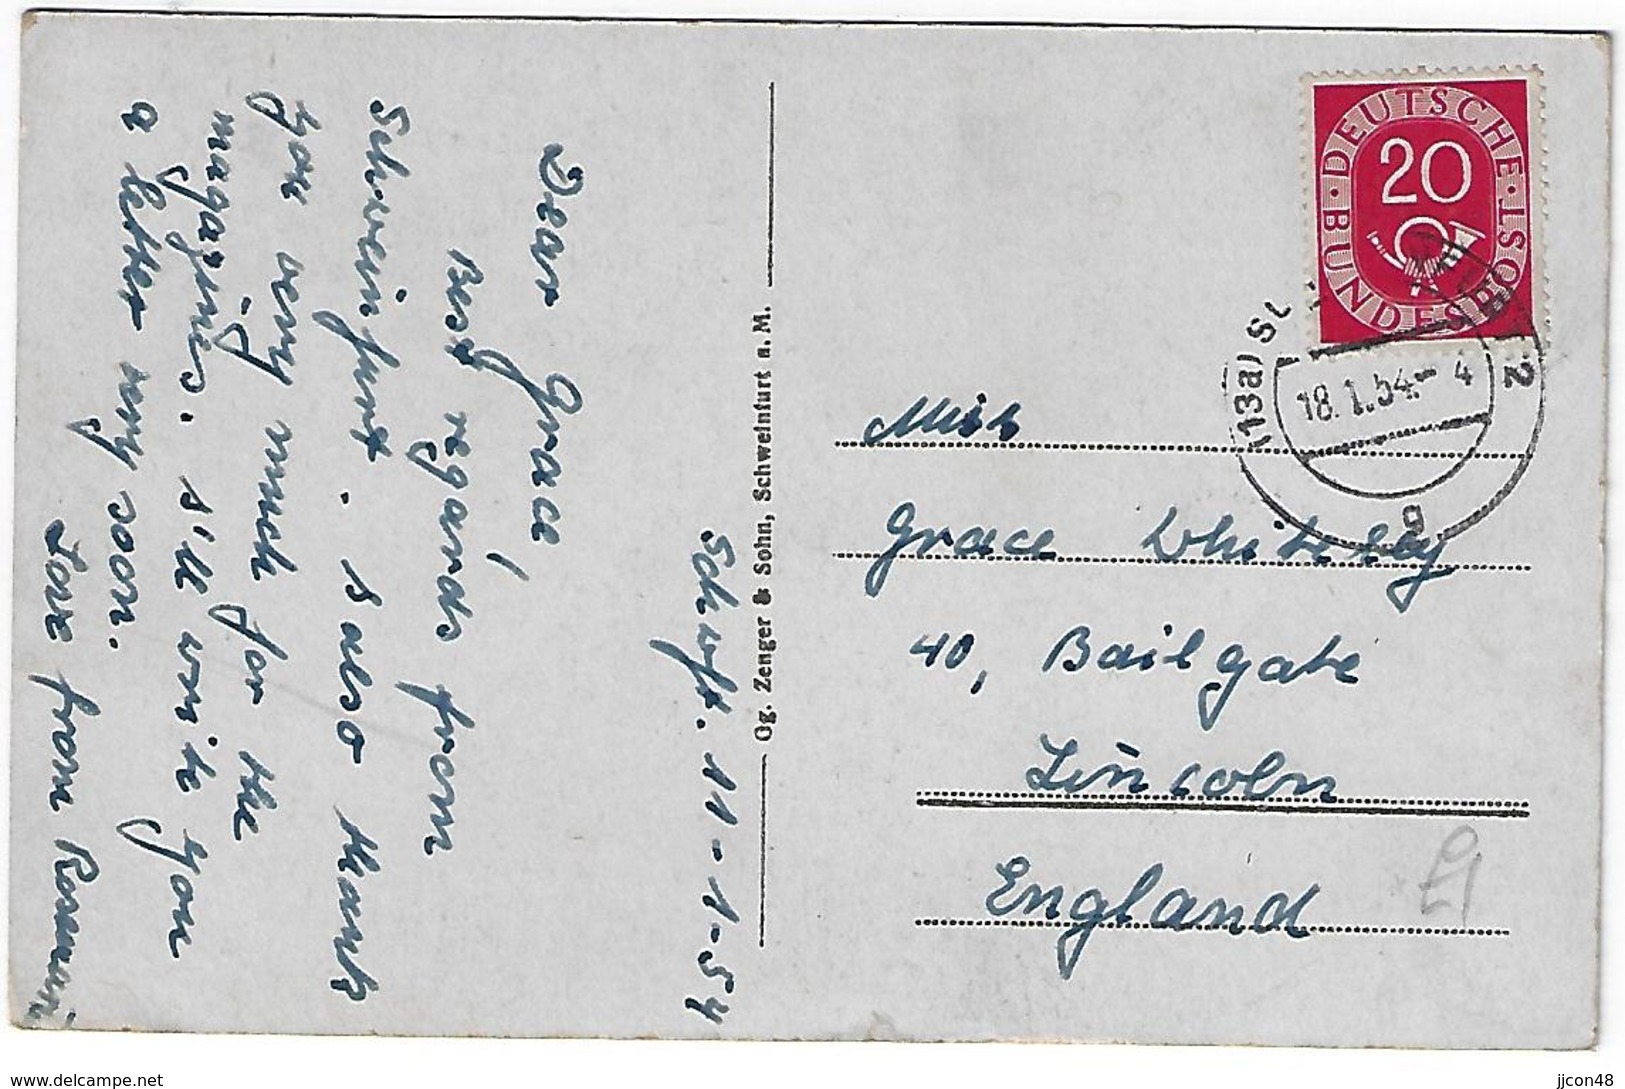 Schwft. 11-1-54
Dear Grace!
Best regards from
Schweinfurt. I also thank
you very much for the
magazines. I'll write you
a letter very soon.
Love from Rosmarie
Og. Zenger & Sohn, Schweinfurt a. M.
DEUTSCHE BUNDESPOST
20
(13a) S
2
18.1.54.-4
g
Miss
Grace Whiteley
40, Bailgate
Lincoln
England
www.delcampe.net
jjcon48